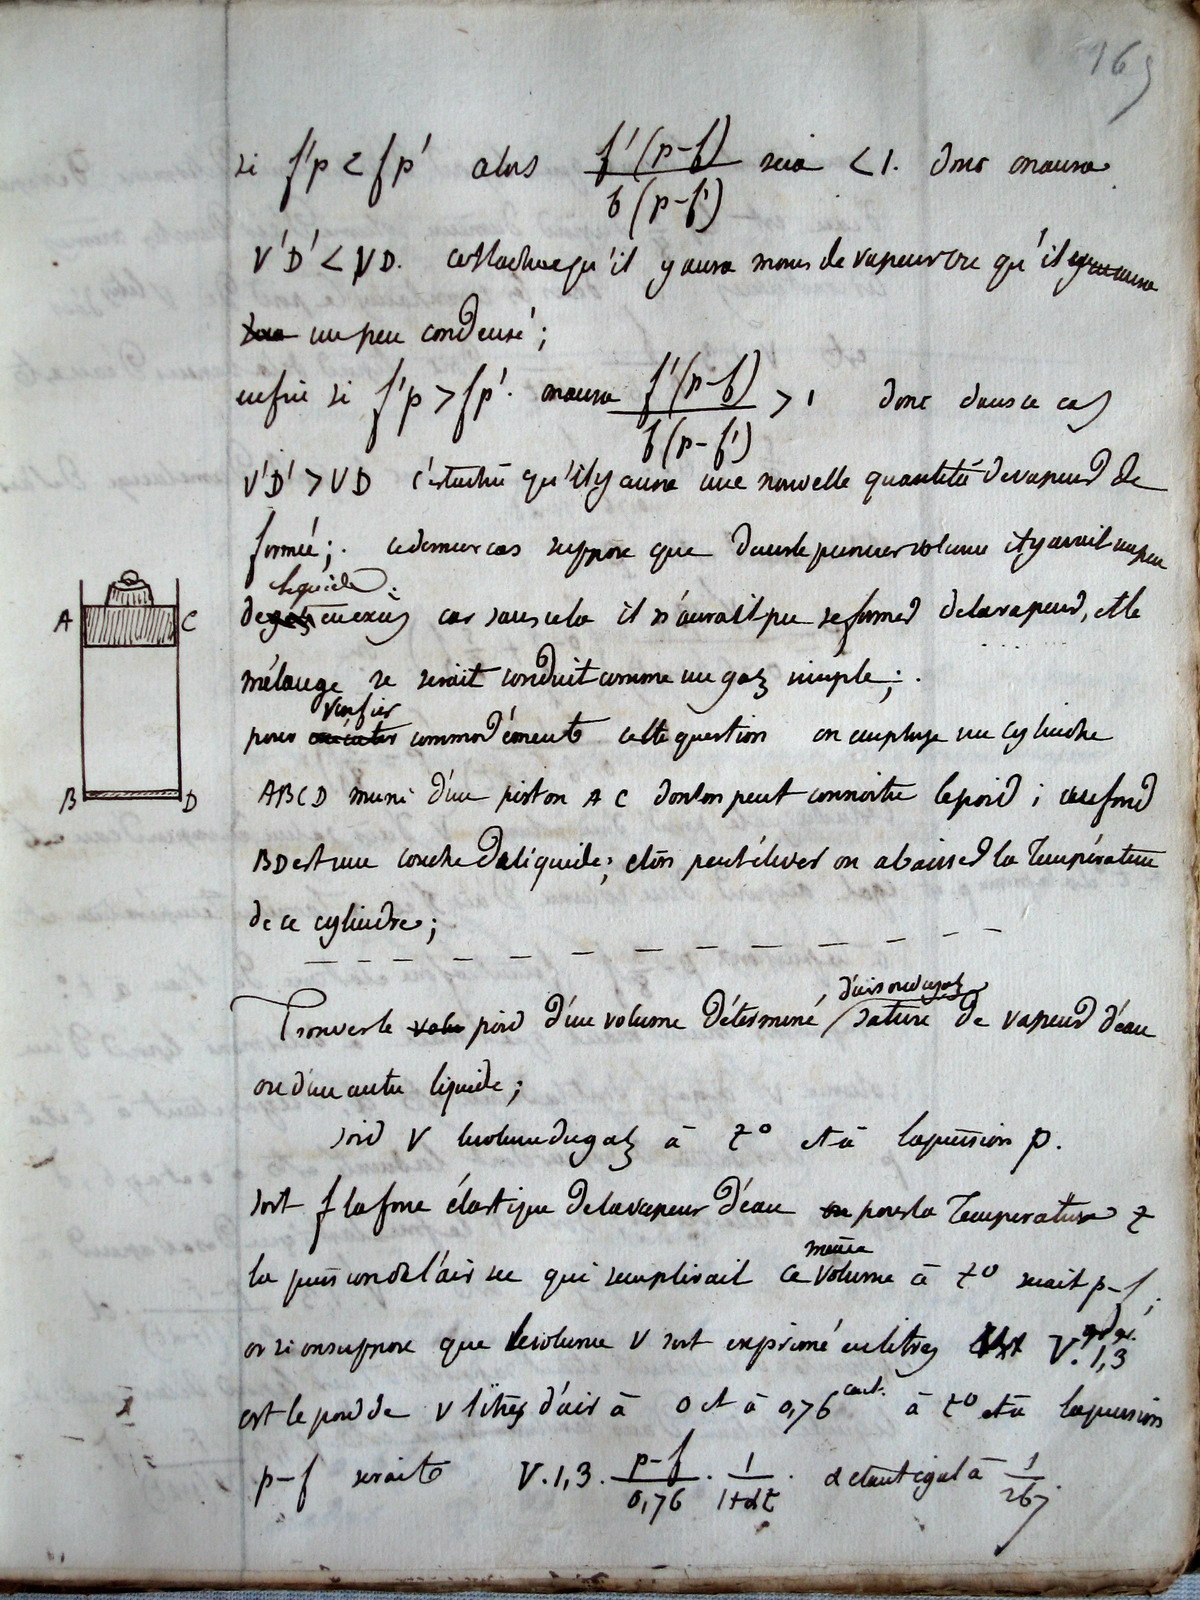 165
si f'p < fp' alors f'(p-f) / f(p-f') sera < 1. donc on aura
V'D' < VD. c'est a dire qu'il y aura moins de vapeur ou qu'il
un peu condensé ;
enfin si f'p > fp'. on aura f'(p-f) / f(p-f') > 1 donc dans ce cas
V'D' > VD c'est a dire qu'il y aura une nouvelle quantité de vapeur de
formée ;. ce dernier cas suppose que dans le premier volume il y avait un peu
liquide
de en excès car sans cela il n'aurait pu se former de la vapeur, et le
mélange se serait conduit comme un gaz simple ;.
vérifier
pour commodément cette question on employe un cylindre
A C
B D
ABCD muni d'un piston AC dont on peut connoitre le poid ; au fond
BD est une couche de liquide ; et on peut élever ou abaisser la Température
de ce cylindre ;
d'air ou de gaz
Trouver le poid d'un volume déterminé saturé de vapeur d'eau
ou d'un autre liquide ;
soit V le volume du gaz à t° et à la pression p.
soit f la force élastique de la vapeur d'eau pour la Temperature t
même
la pression de l'air sec qui remplirait ce volume à t° serait p-f ;
or si on suppose que le volume V soit exprimé en litres V. 1,3 gr.
est le poid de V litres d'air à 0 et à 0,76 cent. à t° et à la pression
p-f serait V. 1,3. p-f / 0,76 . 1 / 1+αt . α etant égal à 1 / 267.